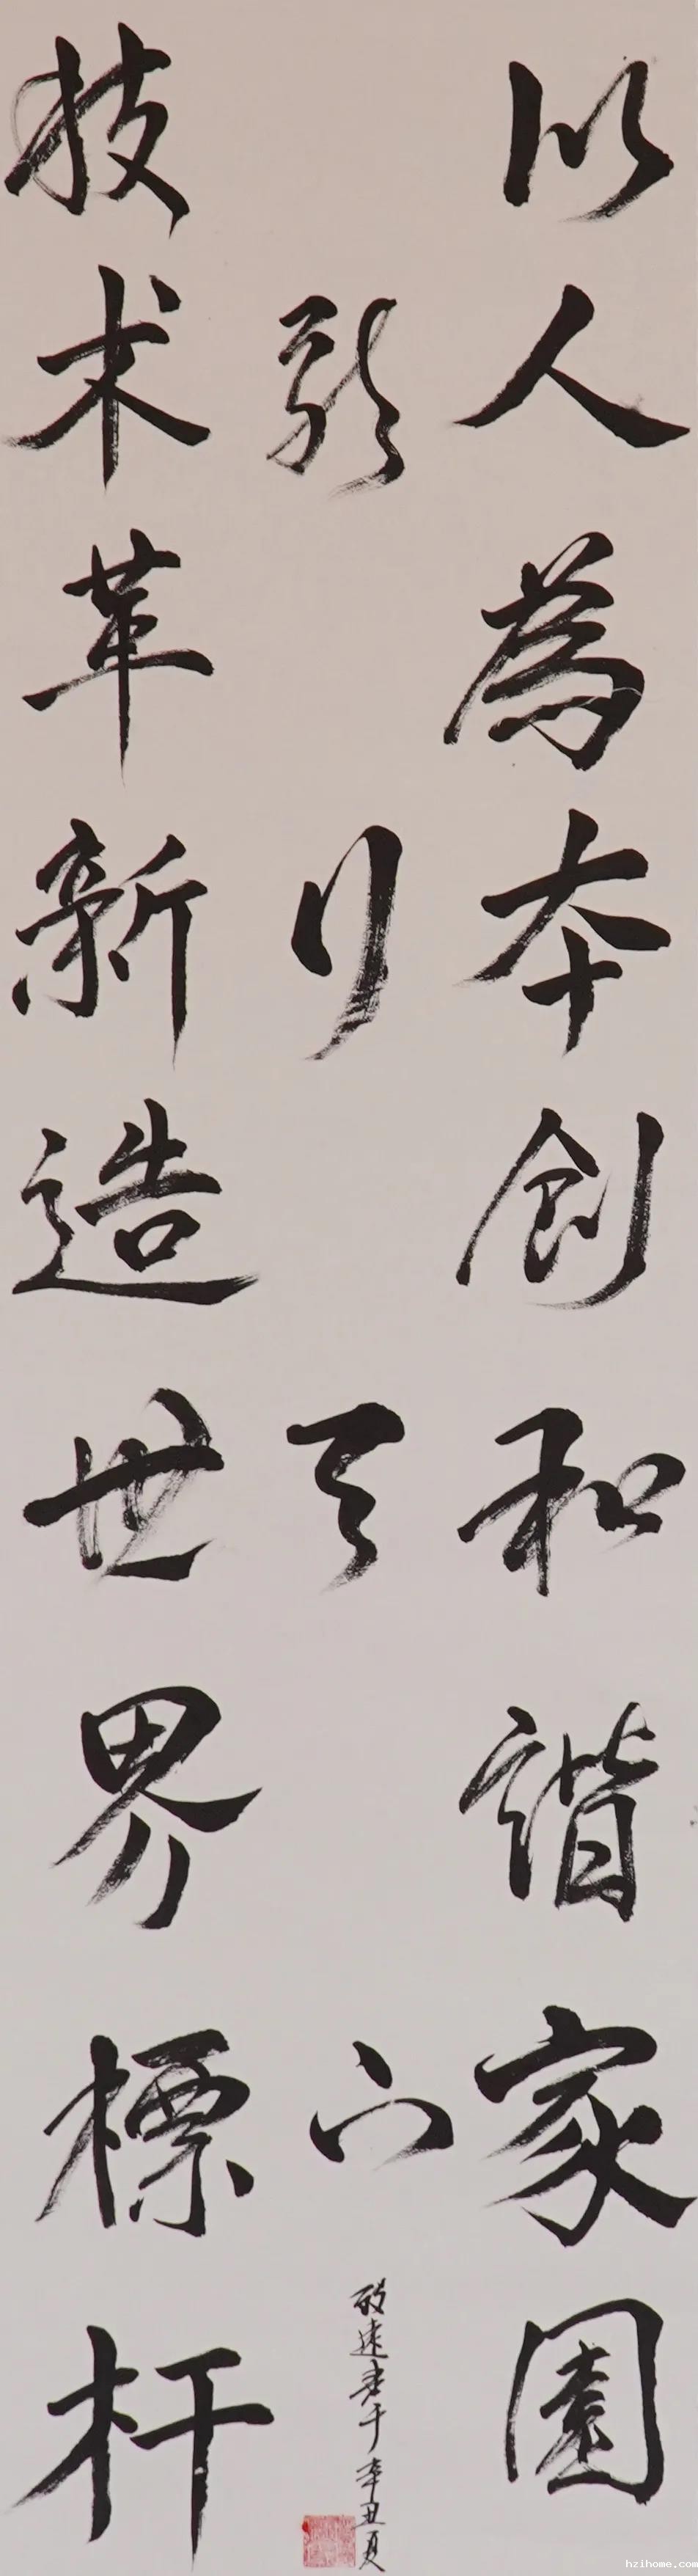 以人為本創和諧家園
行天下
技术革新造世界標杆
致遠書于辛丑夏
hzihome.com